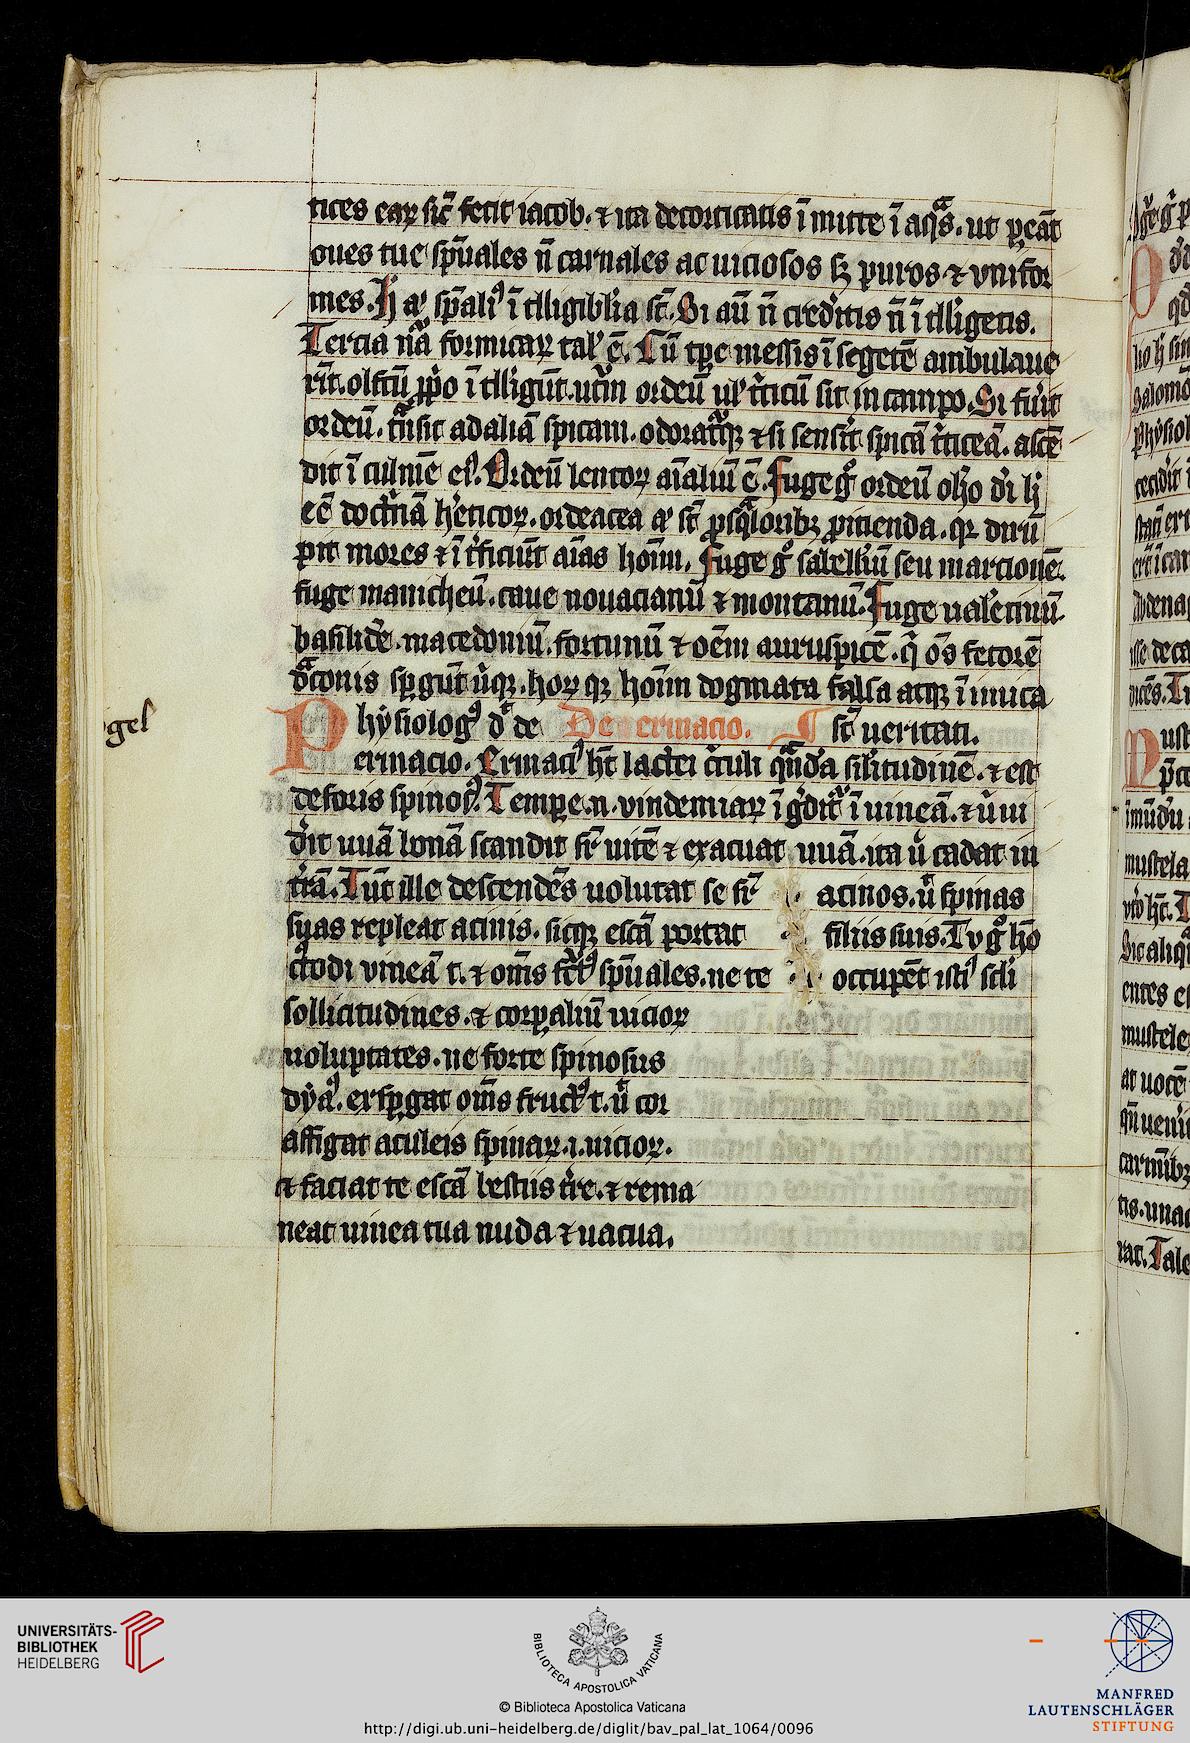 tices eaꝝ sic̄ fecit iacob. ⁊ ita decorticatis ī mitte ī aqᷓs. ut ꝑeāt
oues tue sp̄uales n̄ carnales ac uiciosos sꝫ puros ⁊ vnifor
mes. H̄ aͥ sp̄aliꝰ ī tlligibilia st̄. Si aū n̄ crediͭtis n̄ ī tlligetis.
Tercia nᷓa formicaꝝ talꝭ ē. Cū tp̄e messis ī segetē ambulaue
rīt. olfcū ꝓpͦo ī tlligūt. utͣm ordeū ulꝭ tͥticū sit in campo. Si fuͥit
ordeū. tͣnsit ad aliā spicam. odoratqꝫ ⁊ si sensͥit spicā tͥticeā. ascē
dit ī culmē eiꝰ. Ordeū lentoꝝ aīaliū ē. Fuge gͦ ordeū oh̄o dͥi h̄
eē doctͥnā hͥeticoꝝ. ordeacea aͥ st̄ p̄sqᷓloribꝫ ꝓicienda. qꝛ dirū
pit mores ⁊ ī tͥficiūt aīas hoīm. Fuge gͦ sabelliū seu marcionē.
fuge manicheū. caue nouacianū ⁊ montanū. Fuge ualͤetinū
basilidē. macedoniū. fortunū ⁊ oēm auruspicē. qͥ oēs fetorē
dᷓconis spͣgūt ūqꝫ. hoꝝ qꝫ hoīm dogmata falsa atqꝫ inimica
gel
Physiologꝰ dͭ de De ermacio. st̄ ueritati.
ermacio. Ermaciꝰ ht̄ lactei cͥculi qᷓndā silitudinē. ⁊ est
deforis spinosꝰ. Tempe. n. vindemiaꝝ ī gͣditͬ ī uineā. ⁊ uͥ ui
dͤit uuā bonā scandit sr̄ uitē ⁊ exacuat uuā. ita uͭ cadat in
tͤrā. Tūc ille descendēs uolutat se sr̄ acinos. uͭ spinas
suas repleat acinis. sicqꝫ escā portat filiis suis. Tv gͦ ho
cͣtodi vineā t. ⁊ om̄s fct̄ꝰ sp̄uales. ne te occupēt istiͥ scli
sollicitudines. ⁊ corꝑaliū uicioꝝ
uoluptates. ne forte spinosus
dyaꝰ. erspͣgat om̄s fructꝰ t. uͭ cor
affigat aculeis spinaꝝ. i. uicioꝝ.
et faciat te escā bestiis tͤre. ⁊ rema
neat uinea tua nuda ⁊ uacua.
UNIVERSITÄTS-
BIBLIOTHEK
HEIDELBERG
BIBLIOTECA APOSTOLICA VATICANA
© Biblioteca Apostolica Vaticana
http://digi.ub.uni-heidelberg.de/diglit/bav_pal_lat_1064/0096
MANFRED
LAUTENSCHLÄGER
STIFTUNG